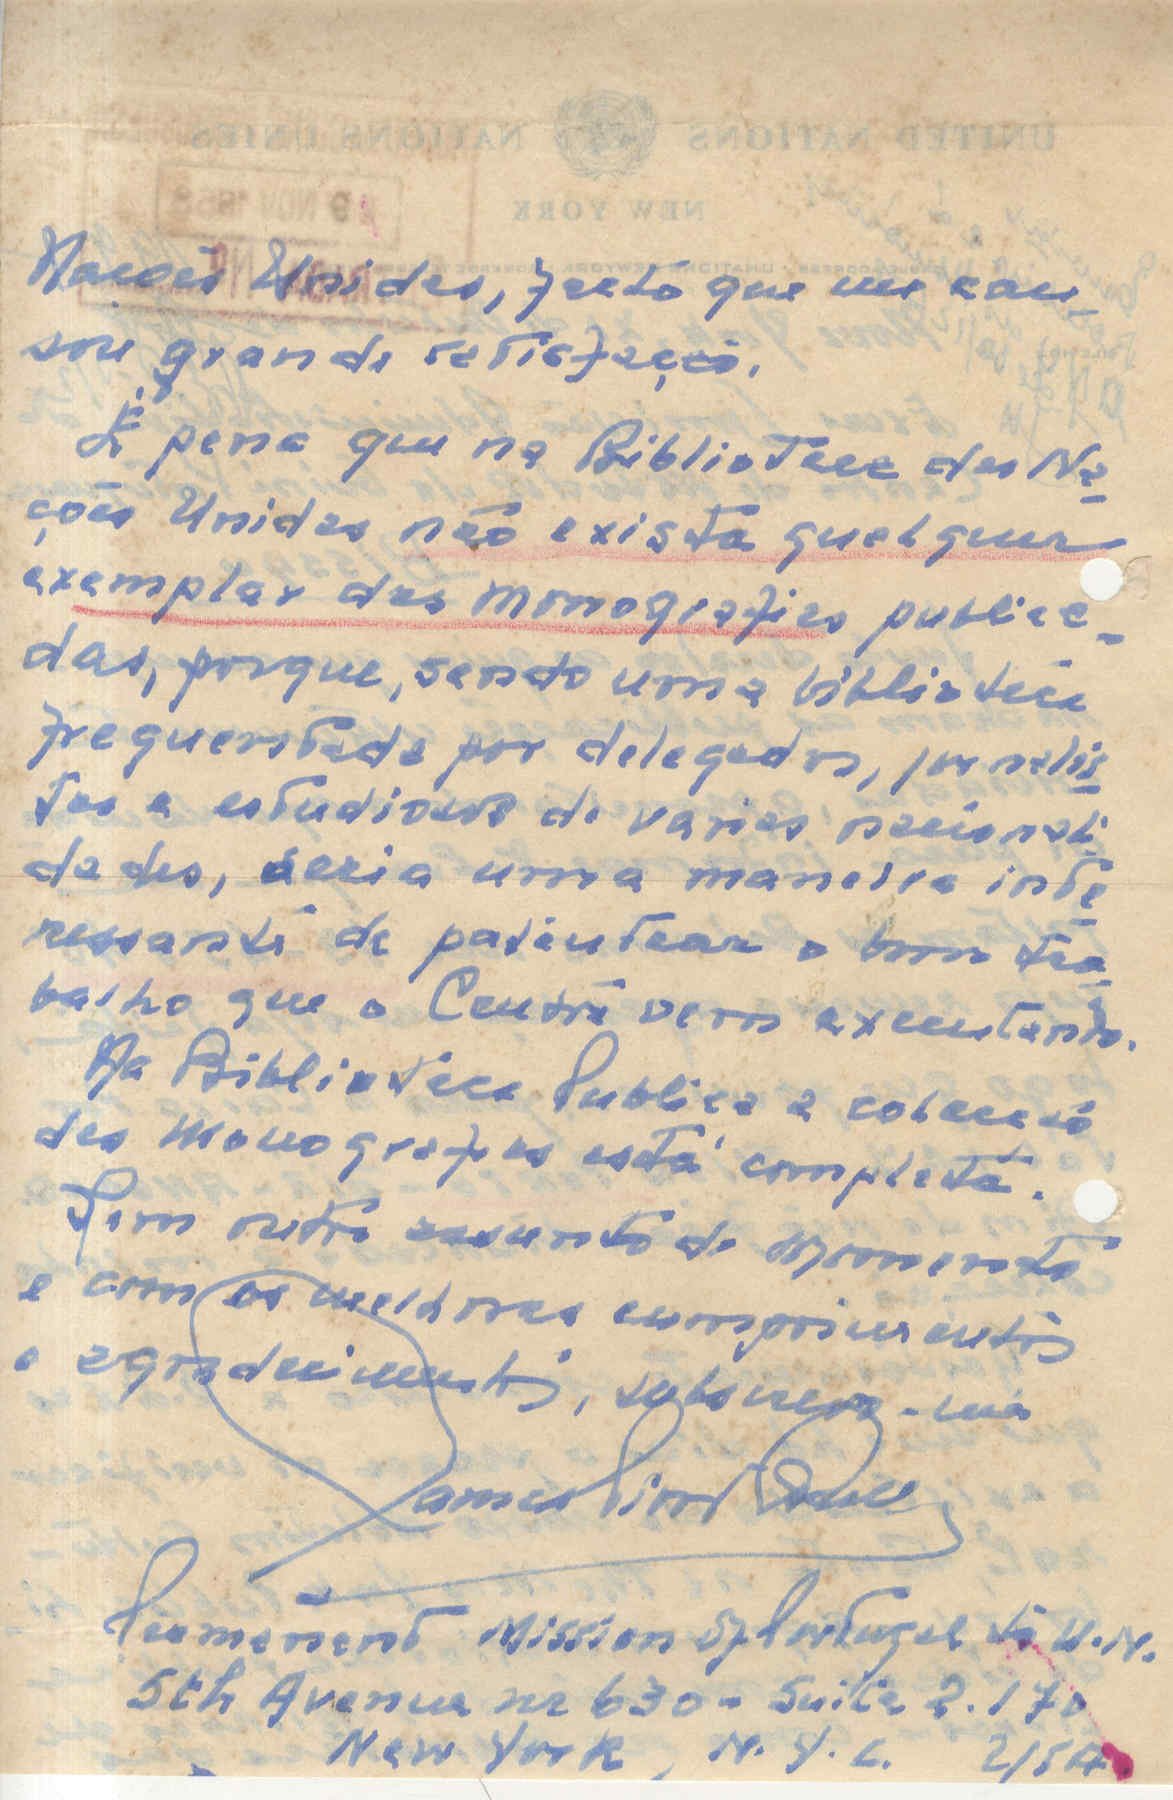 Nações Unidas, facto que me cau-
sou grande satisfação.
É pena que na Biblioteca das Na-
ções Unidas não exista qualquer
exemplar das monografias publica-
das, porque, sendo uma biblioteca
frequentada por delegados, jornalis-
tas e estudiosos de varias nacionali-
dades, seria uma maneira inte-
ressante de patentear o bom tra-
balho que o Centro vem executando.
Na Biblioteca Publica a colecção
das Monografias está completa.
Sem outro assunto de momento
e com os melhores cumprimentos
e agradecimentos, subscrevo-me
James Pinto
Permanent Mission of Portugal to U.N.
5th Avenue nr 630 - Suite 2.170
New York, N.Y.C.
UNITED NATIONS NATIONS UNIES
NEW YORK
9 NOV 1953